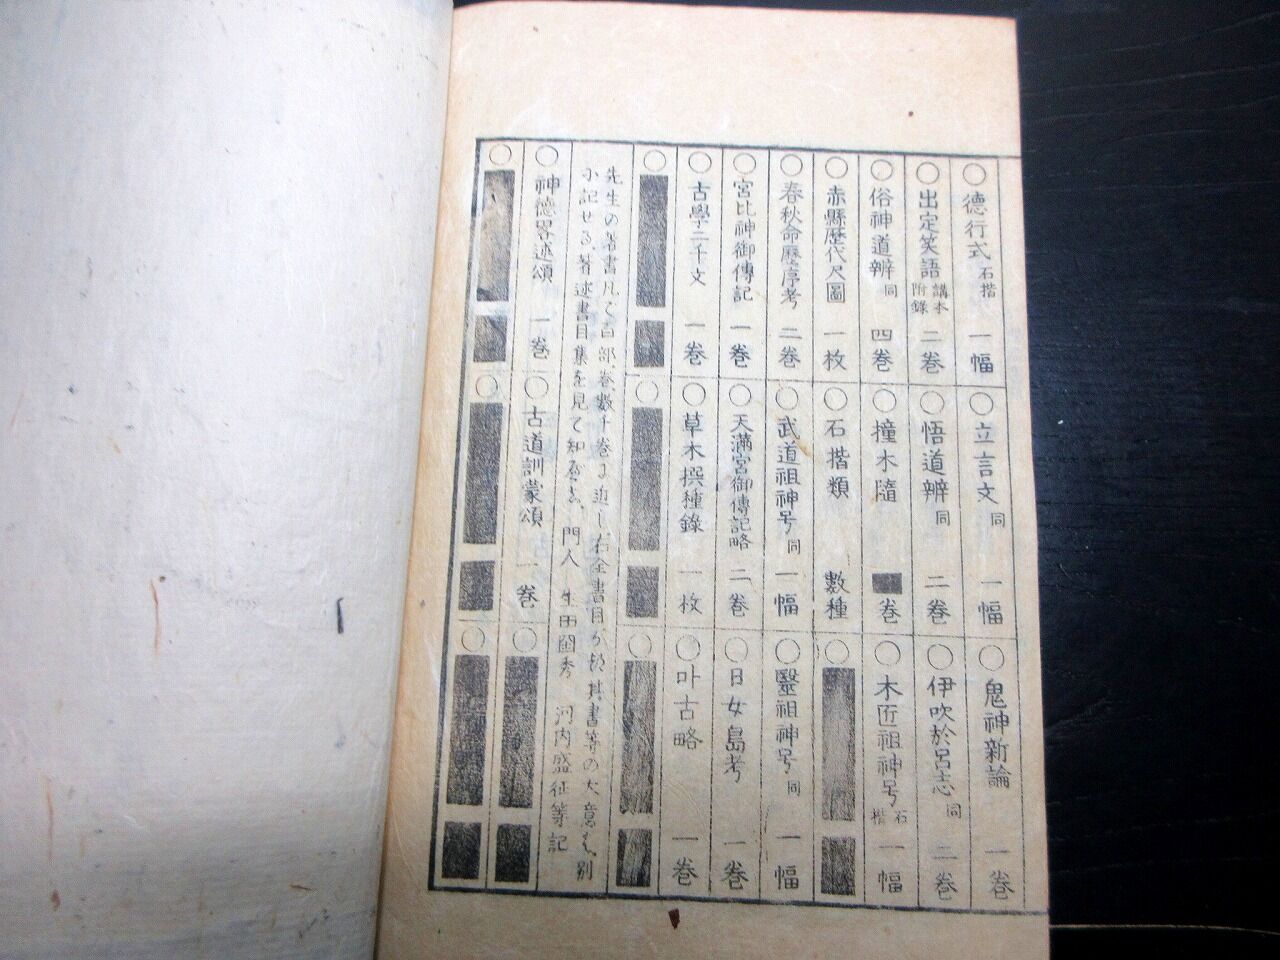 ○德行式 石摺 一幅
○立言文 同 一幅
○鬼神新論 一巻
○出定笑語 講本 附録 二巻
○悟道辨 同 二巻
○伊吹於呂志 同 二巻
○俗神道辨 同 四巻
○撞木隨 巻
○木匠祖神号 石摺 一幅
○赤縣歴代尺圖 一枚
○石摺類 數種
○
○春秋命歴序考 二巻
○武道祖神号 同 一幅
○醫祖神号 同 一幅
○宮比神御傳記 一巻
○天満宮御傳記略 二巻
○日女島考 一巻
○古學二千文 一巻
○草木撰種錄 一枚
○叶古略 一巻
○
○
○
先生の著書凡て百部巻数千巻に近し右全書目か於其書等の大意は別
小記せる著述書目集を見て知るへし 門人 生田國秀 河内盛征等記
○神德畧述頌 一巻
○古道訓蒙頌 一巻
○
○
○
○